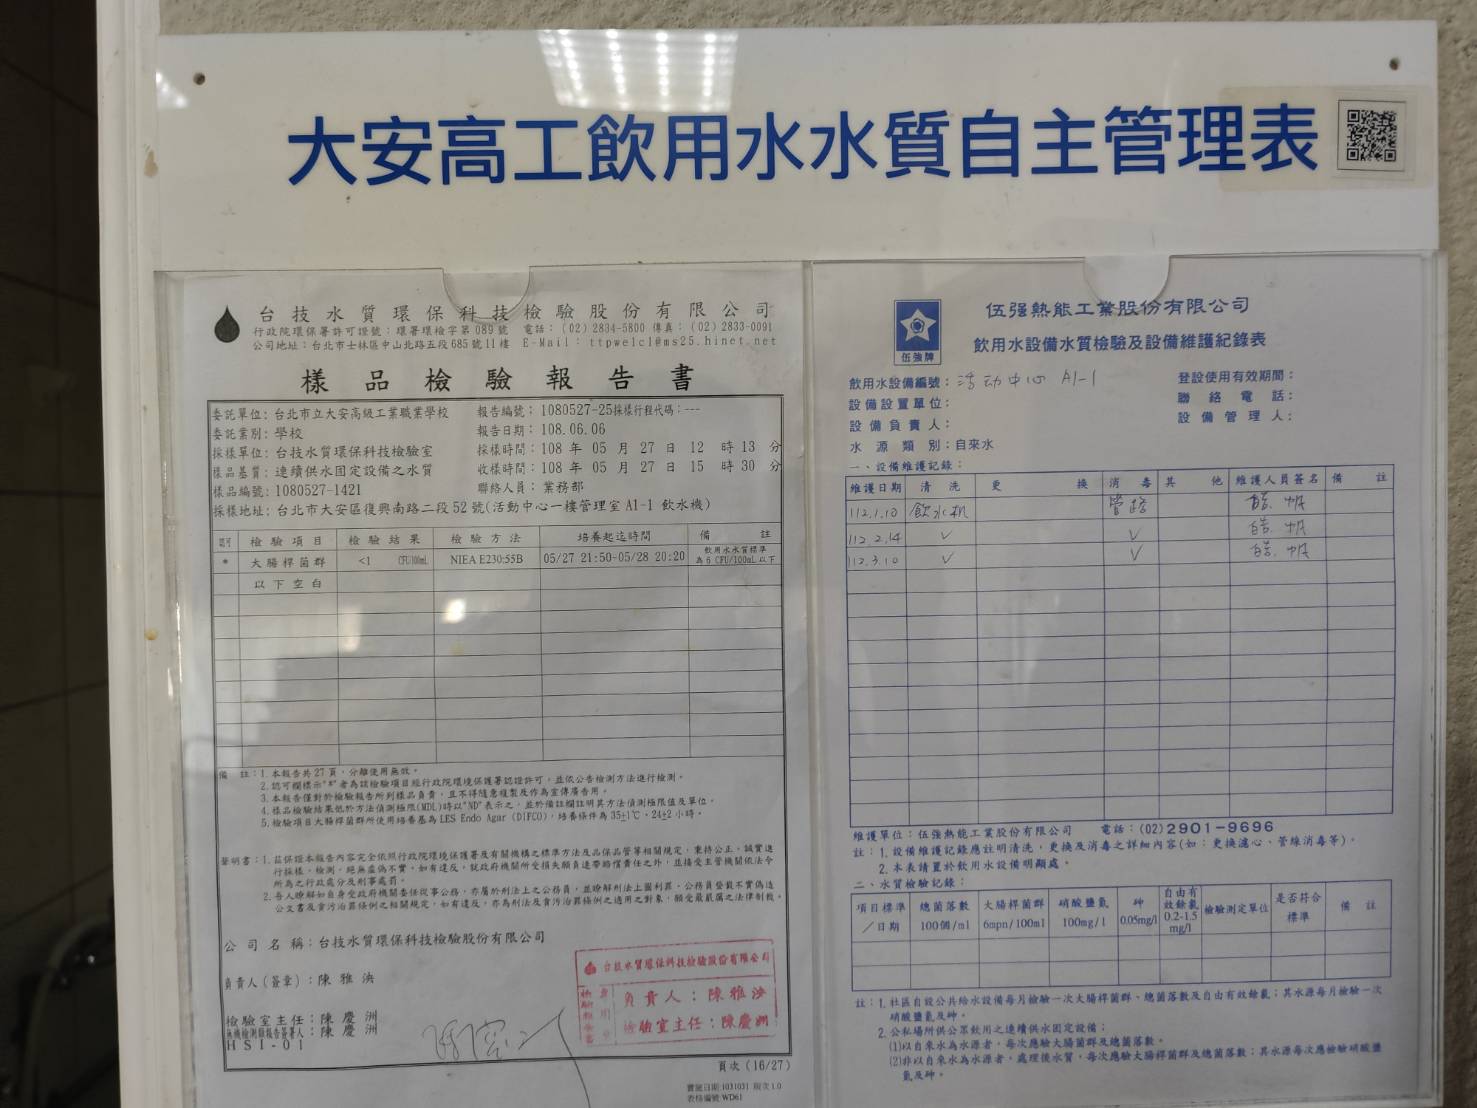 大安高工飲用水水質自主管理表
台技水質環保科技檢驗股份有限公司
行政院環保署許可證號：環署環檢字第089號 電話：(02) 2834-5800 傳真：(02) 2833-0091
公司地址：台北市士林區中山北路五段685號11樓 E-Mail： ttpwelcl@ms25.hinet.net
樣品檢驗報告書
委託單位：台北市立大安高級工業職業學校 報告編號：1080527-25採樣行程代碼：---
委託業別：學校 報告日期：108.06.06
採樣單位：台技水質環保科技檢驗室 採樣時間：108 年 05 月 27 日 12 時 13 分
樣品基質：連續供水固定設備之水質 收樣時間：108 年 05 月 27 日 15 時 30 分
樣品編號：1080527-1421 聯絡人員：業務部
採樣地址：台北市大安區復興南路二段52號(活動中心一樓管理室 A1-1 飲水機)
認可 檢驗項目 檢驗結果 檢驗方法 培養起迄時間 備註
* 大腸桿菌群 <1 CFU/100mL NIEA E230.55B 05/27 21:50-05/28 20:20 飲用水水質標準為6 CFU/100mL以下
以下空白
備 註：1.本報告共27頁，分離使用無效。
2.認可欄標示"*"者為該檢驗項目經行政院環境保護署認證許可，並依公告檢測方法進行檢測。
3.本報告僅對於檢驗報告所列樣品負責，且不得隨意複製及作為宣傳廣告用。
4.樣品檢驗結果低於方法偵測極限(MDL)時以"ND"表示之，並於備註欄註明其方法偵測極限值及單位。
5.檢驗項目大腸桿菌群所使用培養基為LES Endo Agar (DIFCO)，培養條件為35±1℃、24±2小時。
聲明書：1.茲保證本報告內容完全依照行政院環境保護署及有關機構之標準方法及品保品管等相關規定，秉持公正、誠實進
行採樣、檢測。絕無虛偽不實，如有違反，就政府機關所受損失願負連帶賠償責任之外，並接受主管機關依法令
所為之行政處分及刑事處罰。
2.吾人瞭解如自身受政府機關委任從事公務，亦屬於刑法上之公務員，並瞭解刑法上圖利罪、公務員登載不實偽造
公文書及貪污治罪條例之相關規定，如有違反，亦為刑法及貪污治罪條例之適用之對象，願受最嚴厲之法律制裁。
公司名稱：台技水質環保科技檢驗股份有限公司
負責人(簽章)：陳雅泱
檢驗室主任：陳慶洲
無機檢測類報告簽署人：陳慶洲
HSI-01
台技水質環保科技檢驗股份有限公司
負責人：陳雅泱
檢驗室主任：陳慶洲
頁次 (16/27)
實施日期:1031031 版次1.0
表格編號:WD61
伍強牌
伍强熱能工業股份有限公司
飲用水設備水質檢驗及設備維護紀錄表
飲用水設備編號：活动中心 A1-1 登設使用有效期間：
設備設置單位： 聯絡電話：
設備負責人： 設備管理人：
水源類別：自來水
一、設備維護記錄：
維護日期 清洗 更換 消毒 其他 維護人員簽名 備註
112.1.10 飲水机 管路
112.2.14 ✓ ✓
112.3.10 ✓ ✓
維護單位：伍强熱能工業股份有限公司 電話：(02)2901-9696
註：1.設備維護記錄應註明清洗，更換及消毒之詳細內容(如：更換濾心、管線消毒等)。
2.本表請置於飲用水設備明顯處。
二、水質檢驗記錄：
項目標準／日期 總菌落數 100個/ml 大腸桿菌群 6mpn/100ml 硝酸鹽氮 100mg/l 砷 0.05mg/l 自由有效餘氯 0.2-1.5 mg/l 檢驗測定單位 是否符合標準 備註
註：1.社區自設公共給水設備每月檢驗一次大腸桿菌群、總菌落數及自由有效餘氯；其水源每月檢驗一次
硝酸鹽氮及砷。
2.公私場所供公眾飲用之連續供水固定設備：
(1)以自來水為水源者，每次應驗大腸菌群及總菌落數。
(2)非以自來水為水源者，處理後水質，每次應驗大腸桿菌群及總菌落數；其水源每次應檢驗硝酸鹽
氮及砷。